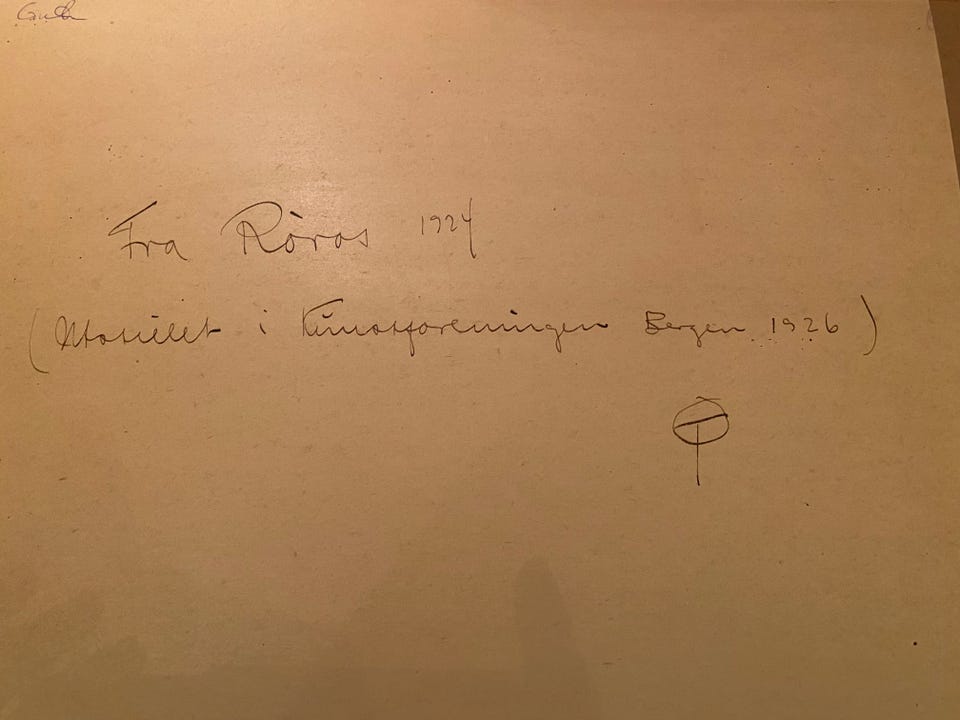 Fra Röros 1924
(Utstillet i Kunstforeningen Bergen 1926)